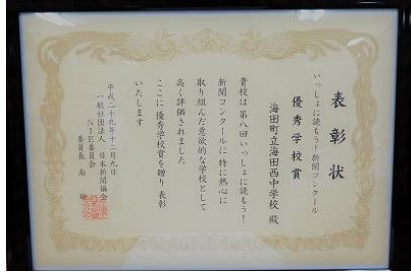 表彰状
いっしょに読もう!新聞コンクール
優秀学校賞
海田町立海田西中学校 殿
貴校は第八回いっしょに読もう!
新聞コンクールに特に熱心に
取り組んだ意欲的な学校として
高く評価されました
ここに優秀学校賞を贈り表彰
いたします
平成二十九年十二月九日
一般社団法人 日本新聞協会
NIE委員会
委員長